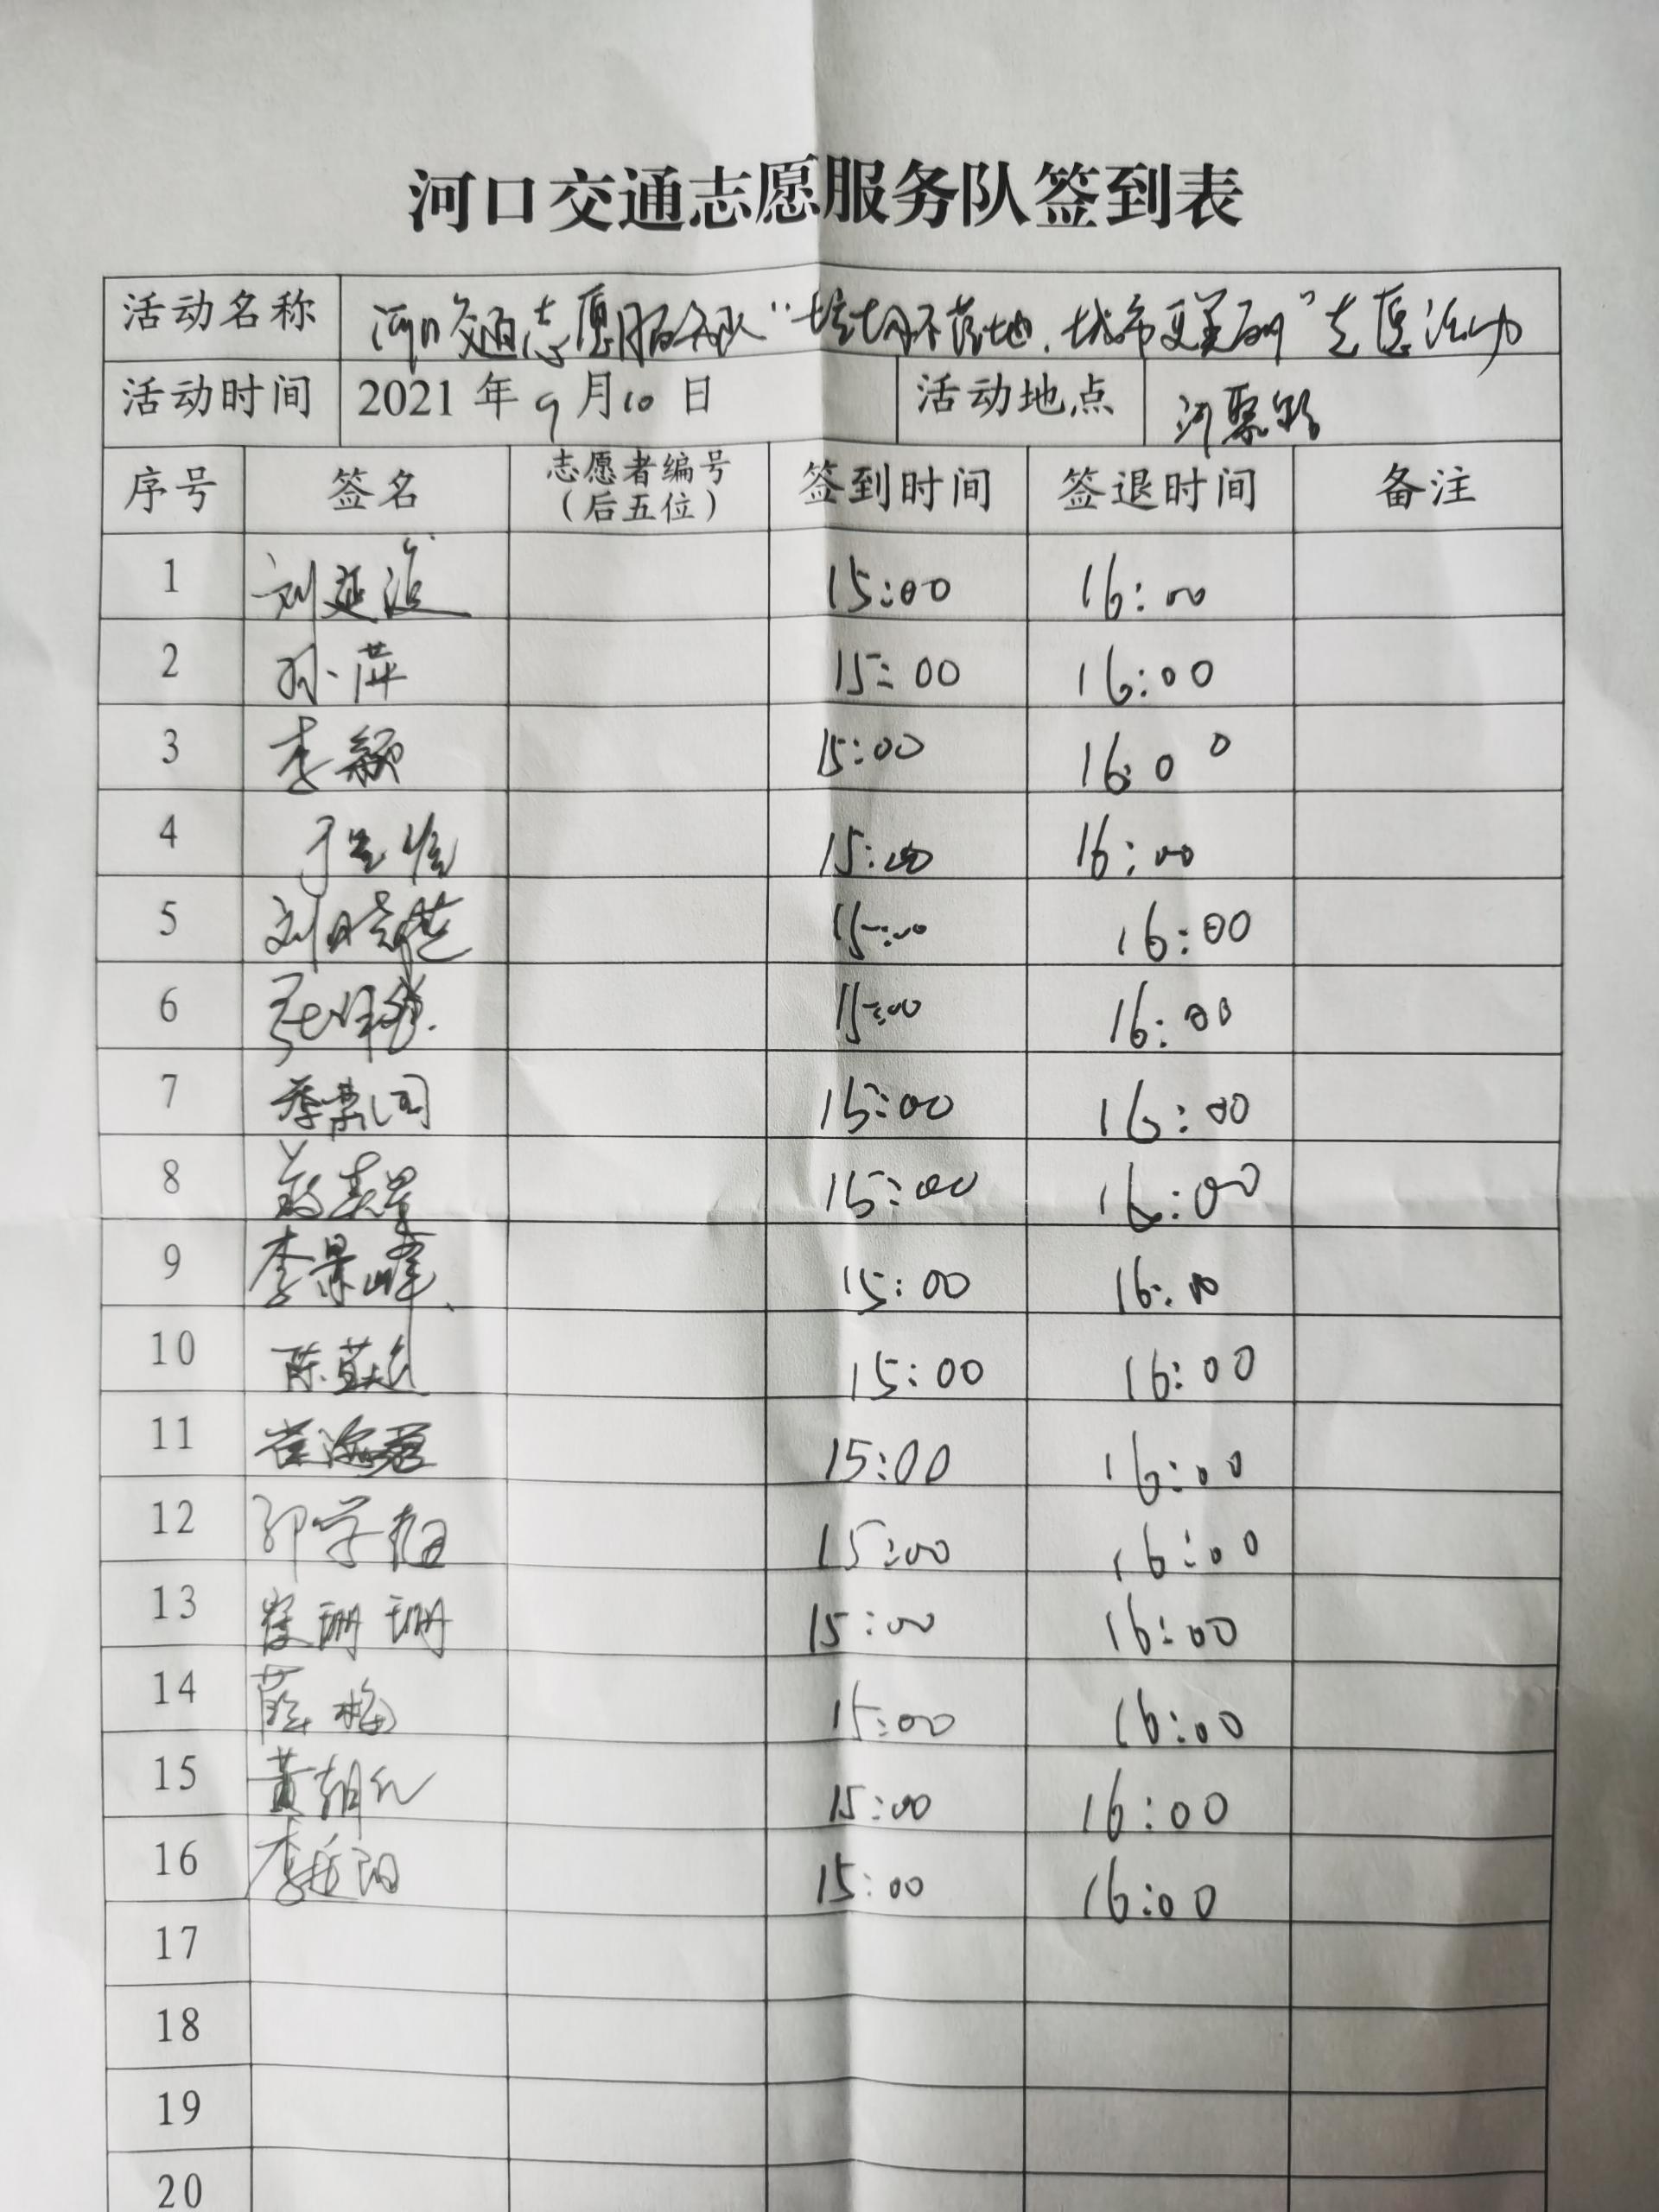 河口交通志愿服务队签到表
活动名称 河口交通志愿服务队“垃圾不落地.城市更美丽”志愿活动
活动时间 2021年9月10日 活动地点 河聚路
序号 签名 志愿者编号（后五位） 签到时间 签退时间 备注
1 刘延 15:00 16:00
2 孙萍 15:00 16:00
3 李颖 15:00 16:00
4 于 15:00 16:00
5 刘晓 15:00 16:00
6 张 15:00 16:00
7 15:00 16:00
8 15:00 16:00
9 李景峰 15:00 16:00
10 陈 15:00 16:00
11 崔海 15:00 16:00
12 郭学 15:00 16:00
13 崔珊珊 15:00 16:00
14 薛梅 15:00 16:00
15 黄朝 15:00 16:00
16 李 阳 15:00 16:00
17
18
19
20